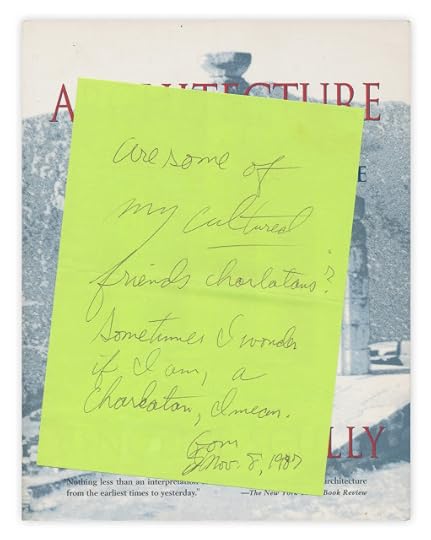 ARCHITECTURE
are some of
my cultured
friends charlatans?
Sometimes I wonder
if I am, a
Charlatan, I mean.
Nov. 8, 1987
LLY
"Nothing less than an interpretation architecture
from the earliest times to yesterday." —The New York Book Review